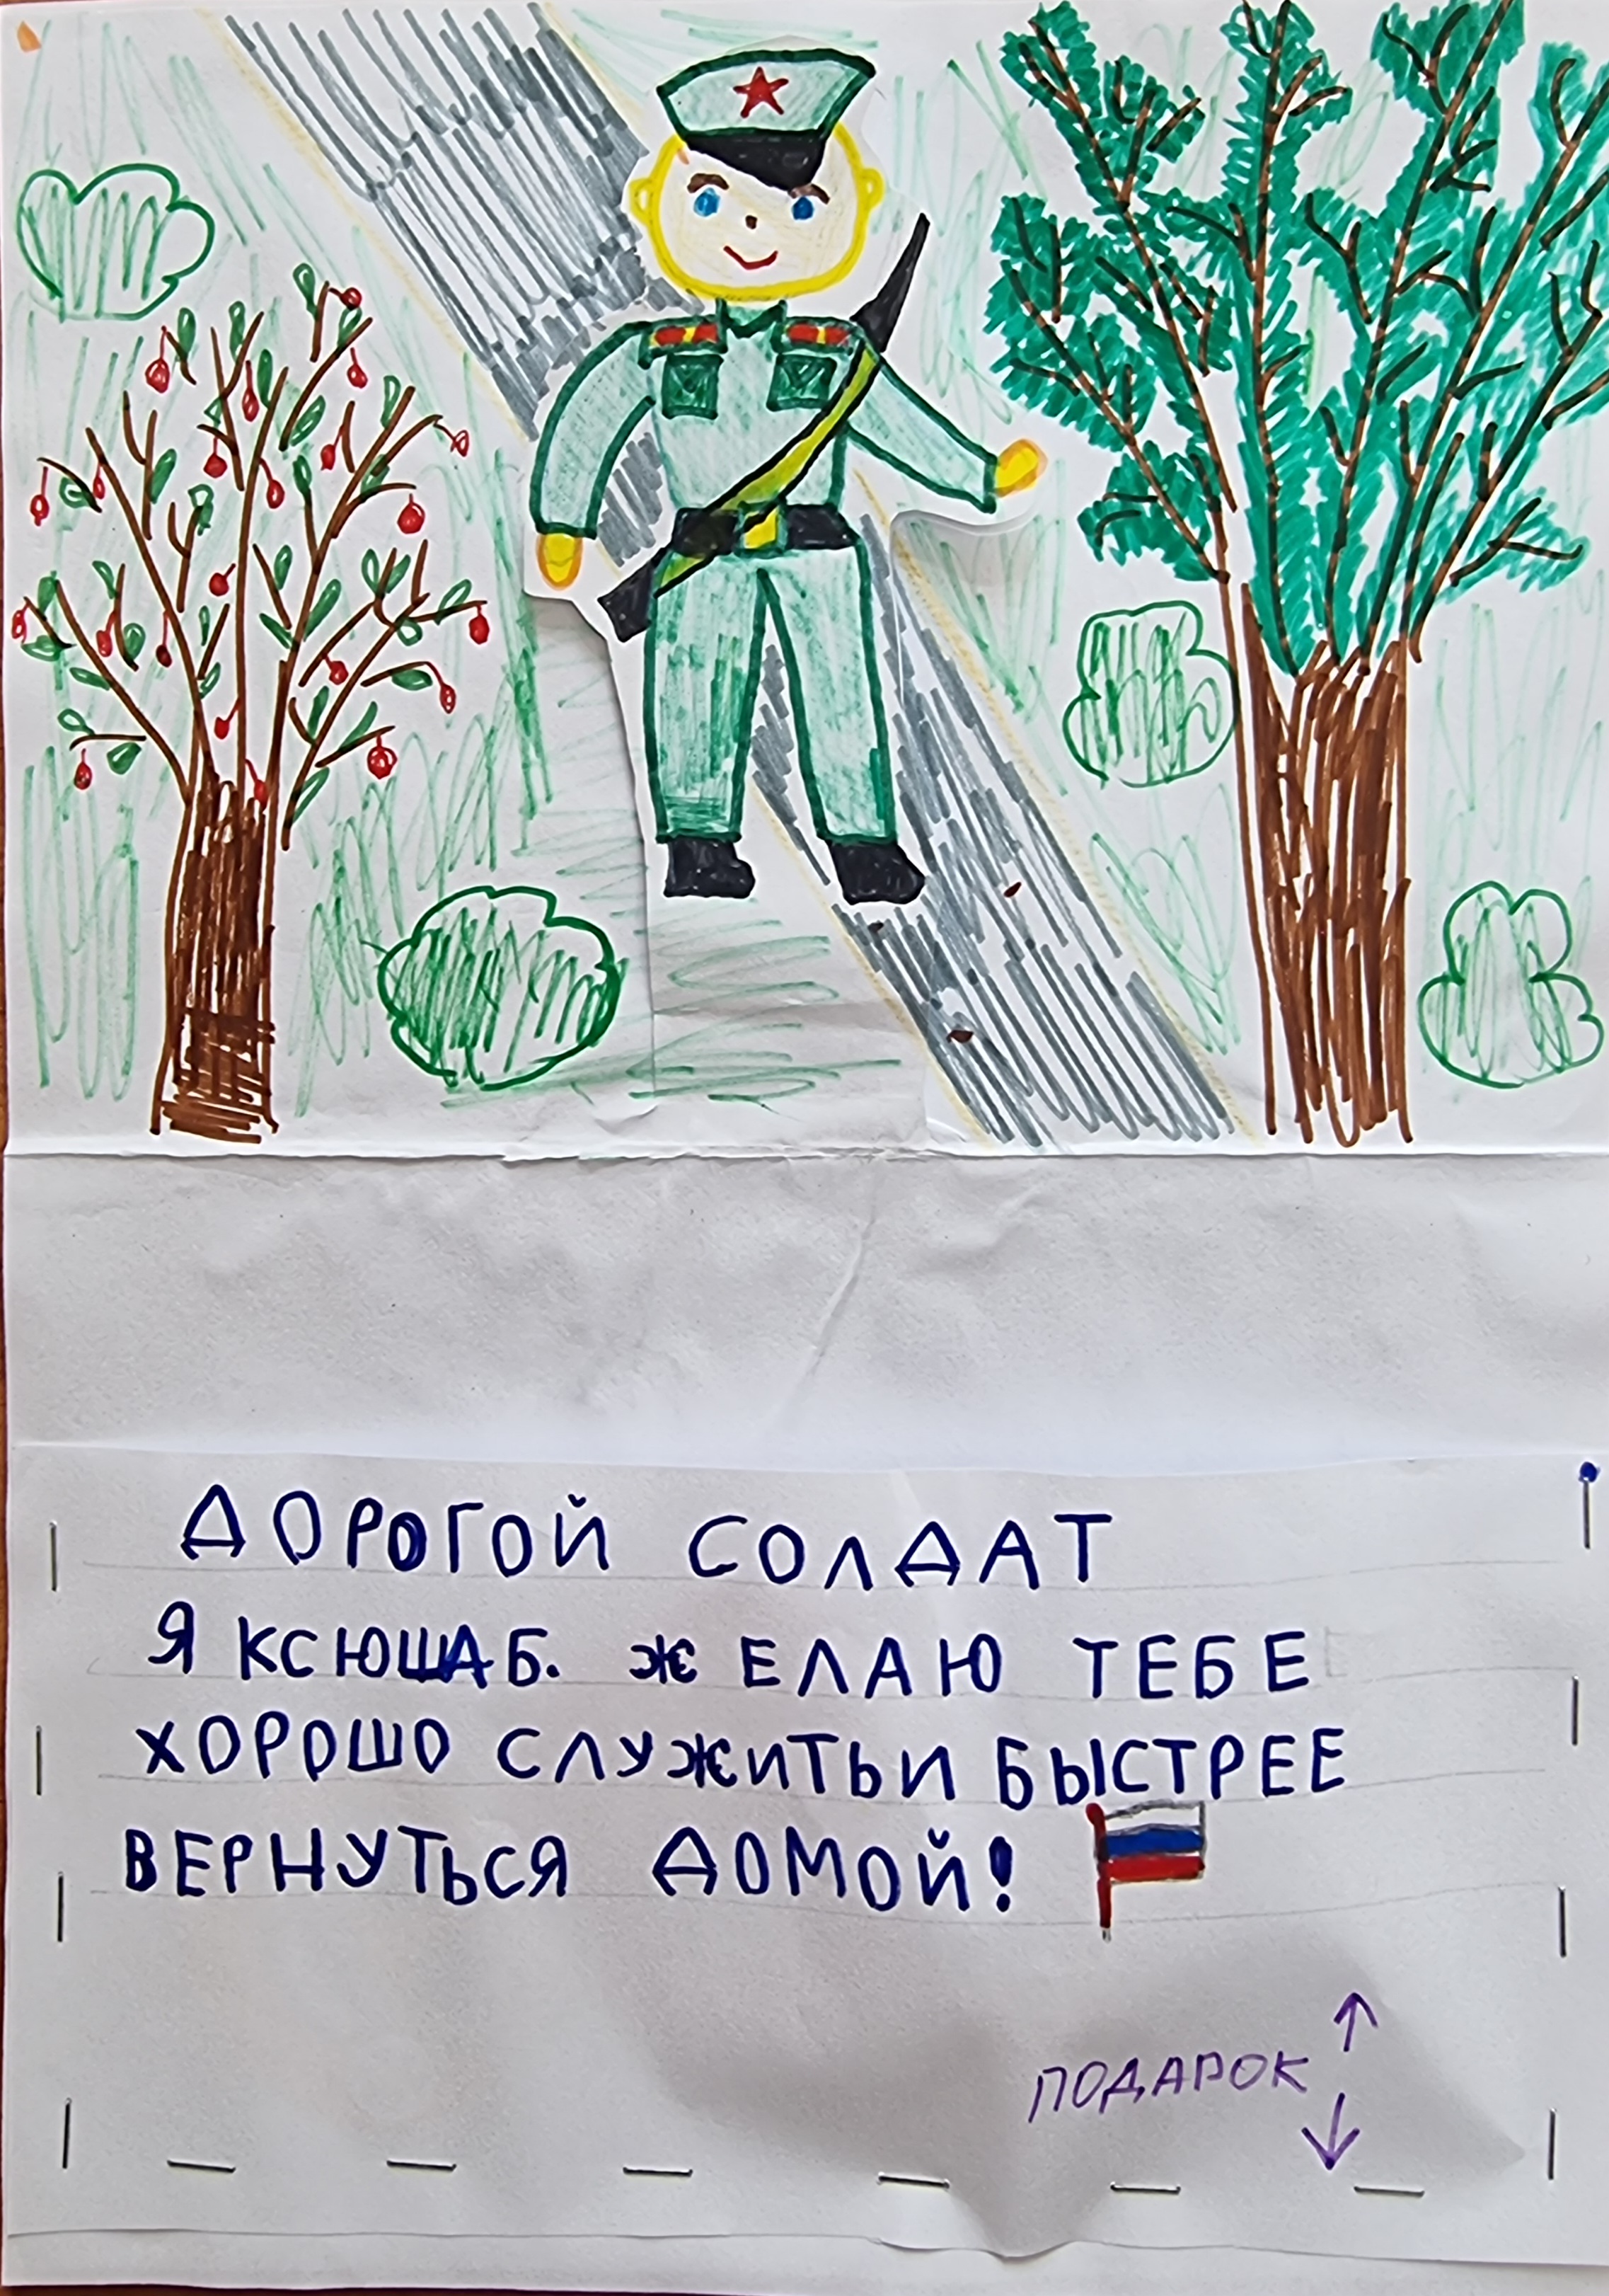 ДОРОГОЙ СОЛДАТ
Я КСЮША Б. ЖЕЛАЮ ТЕБЕ
ХОРОШО СЛУЖИТЬ И БЫСТРЕЕ
ВЕРНУТЬСЯ ДОМОЙ!
ПОДАРОК